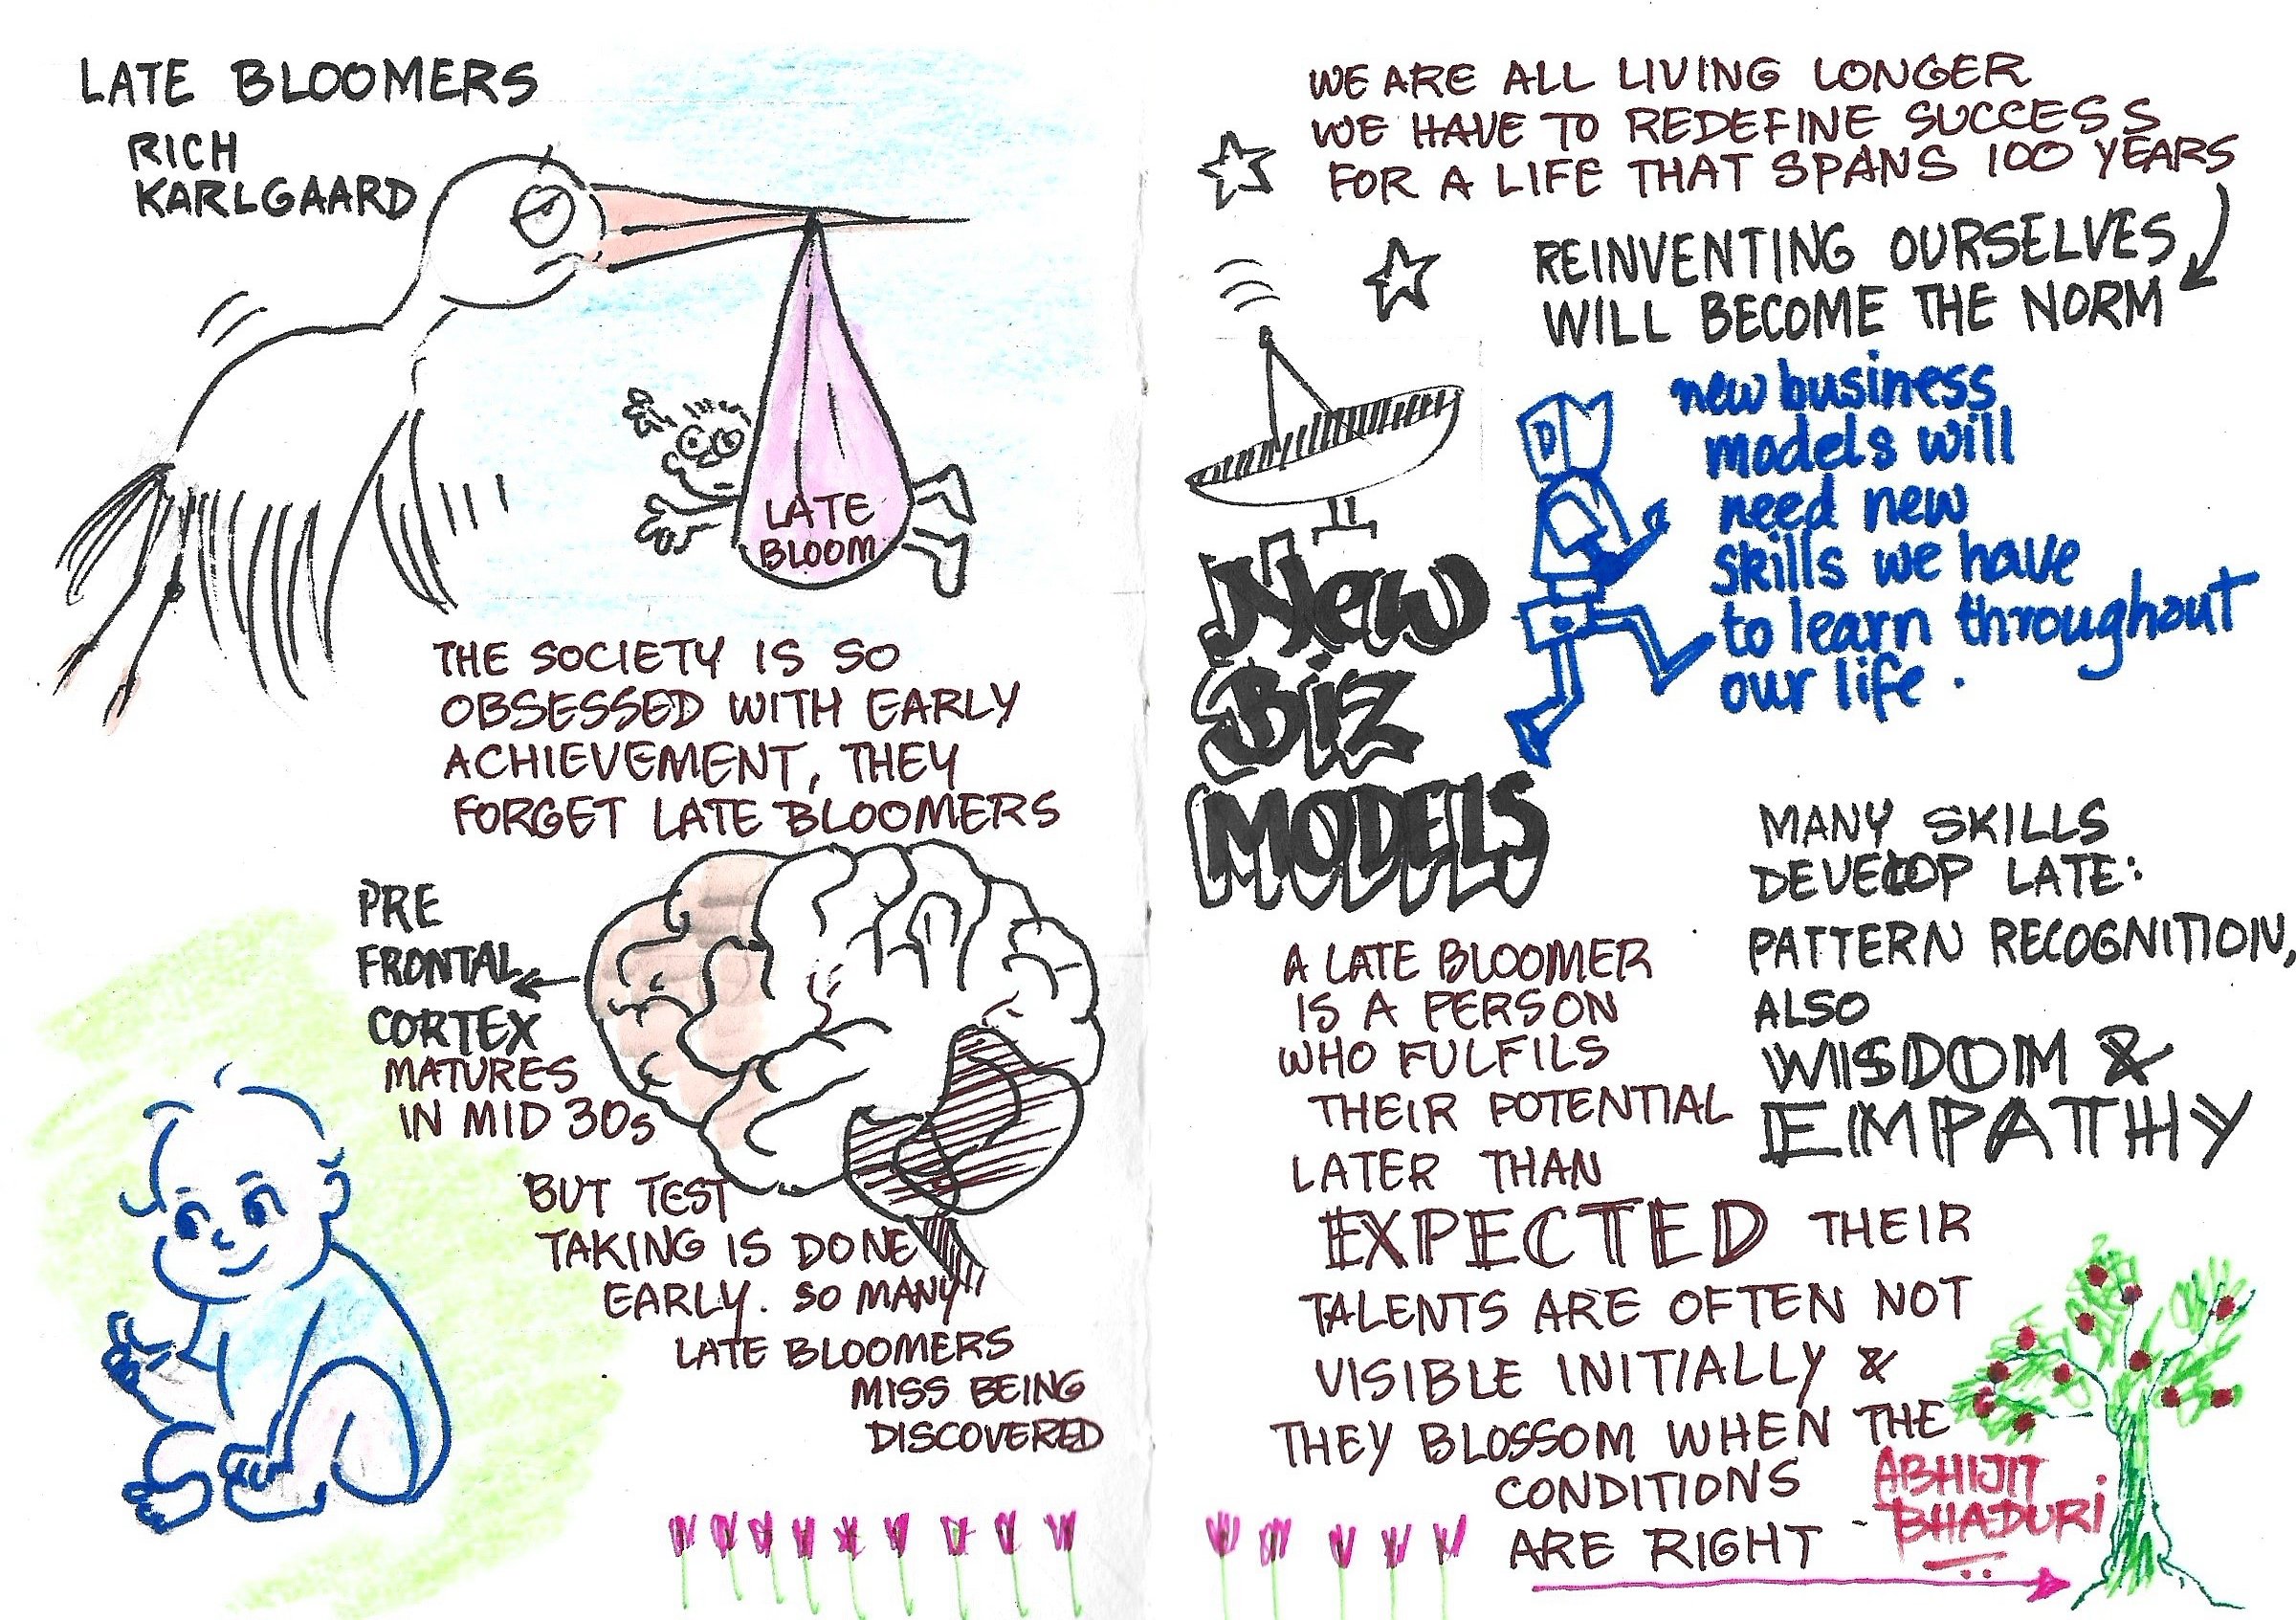 LATE BLOOMERS
RICH
KARLGAARD
LATE
BLOOM
THE SOCIETY IS SO
OBSESSED WITH EARLY
ACHIEVEMENT, THEY
FORGET LATE BLOOMERS
PRE
FRONTAL
CORTEX
MATURES
IN MID 30s
BUT TEST
TAKING IS DONE
EARLY. SO MANY
LATE BLOOMERS
MISS BEING
DISCOVERED
WE ARE ALL LIVING LONGER
WE HAVE TO REDEFINE SUCCESS
FOR A LIFE THAT SPANS 100 YEARS
REINVENTING OURSELVES
WILL BECOME THE NORM
D
new business
models will
need new
skills we have
to learn throughout
our life.
New
Biz
MODELS
MANY SKILLS
DEVELOP LATE:
PATTERN RECOGNITION,
ALSO
WISDOM &
EMPATHY
A LATE BLOOMER
IS A PERSON
WHO FULFILS
THEIR POTENTIAL
LATER THAN
EXPECTED THEIR
TALENTS ARE OFTEN NOT
VISIBLE INITIALLY &
THEY BLOSSOM WHEN THE
CONDITIONS
ARE RIGHT -
ABHIJIT
BHADURI